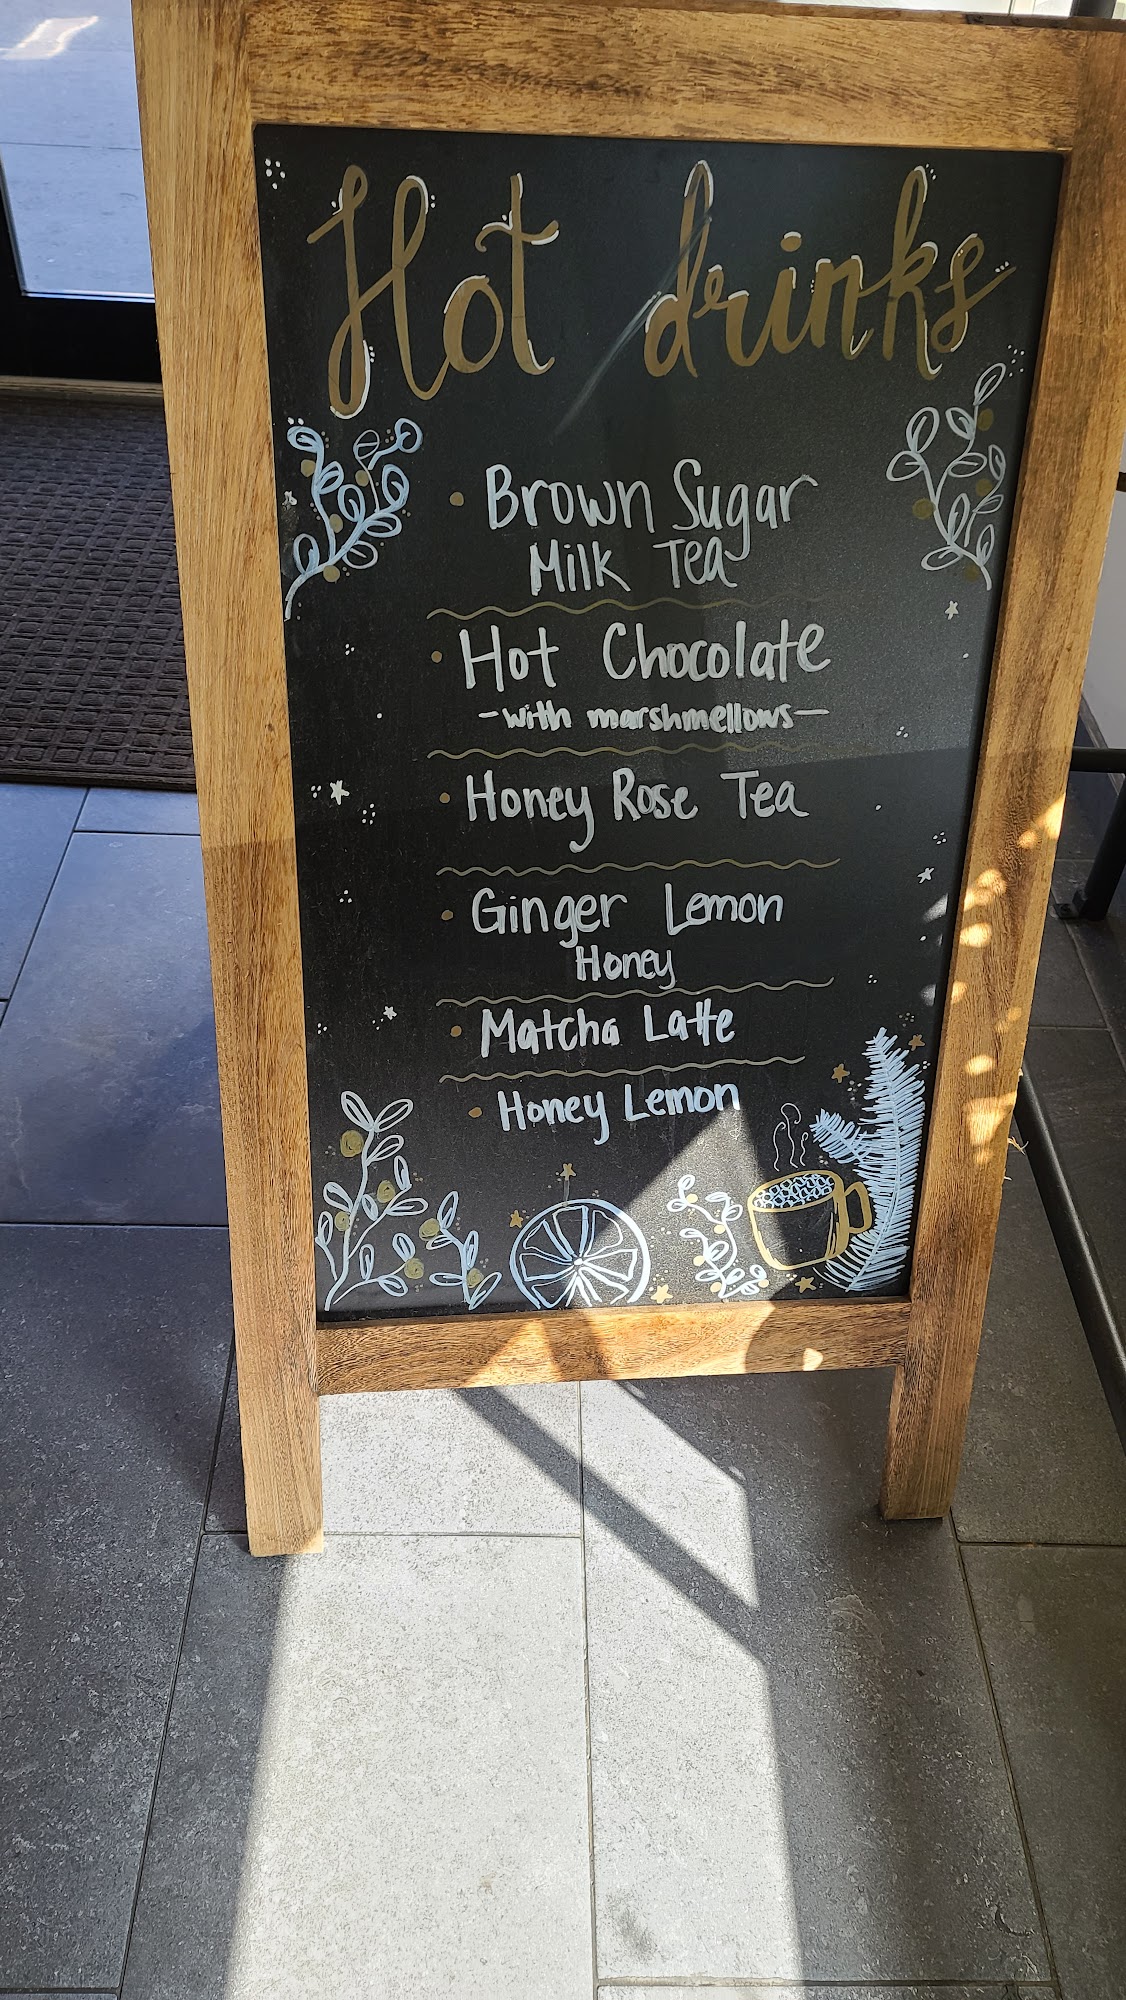 Hot drinks
• Brown Sugar
Milk Tea
• Hot Chocolate
-with marshmellows-
• Honey Rose Tea
• Ginger Lemon
Honey
• Matcha Latte
• Honey Lemon